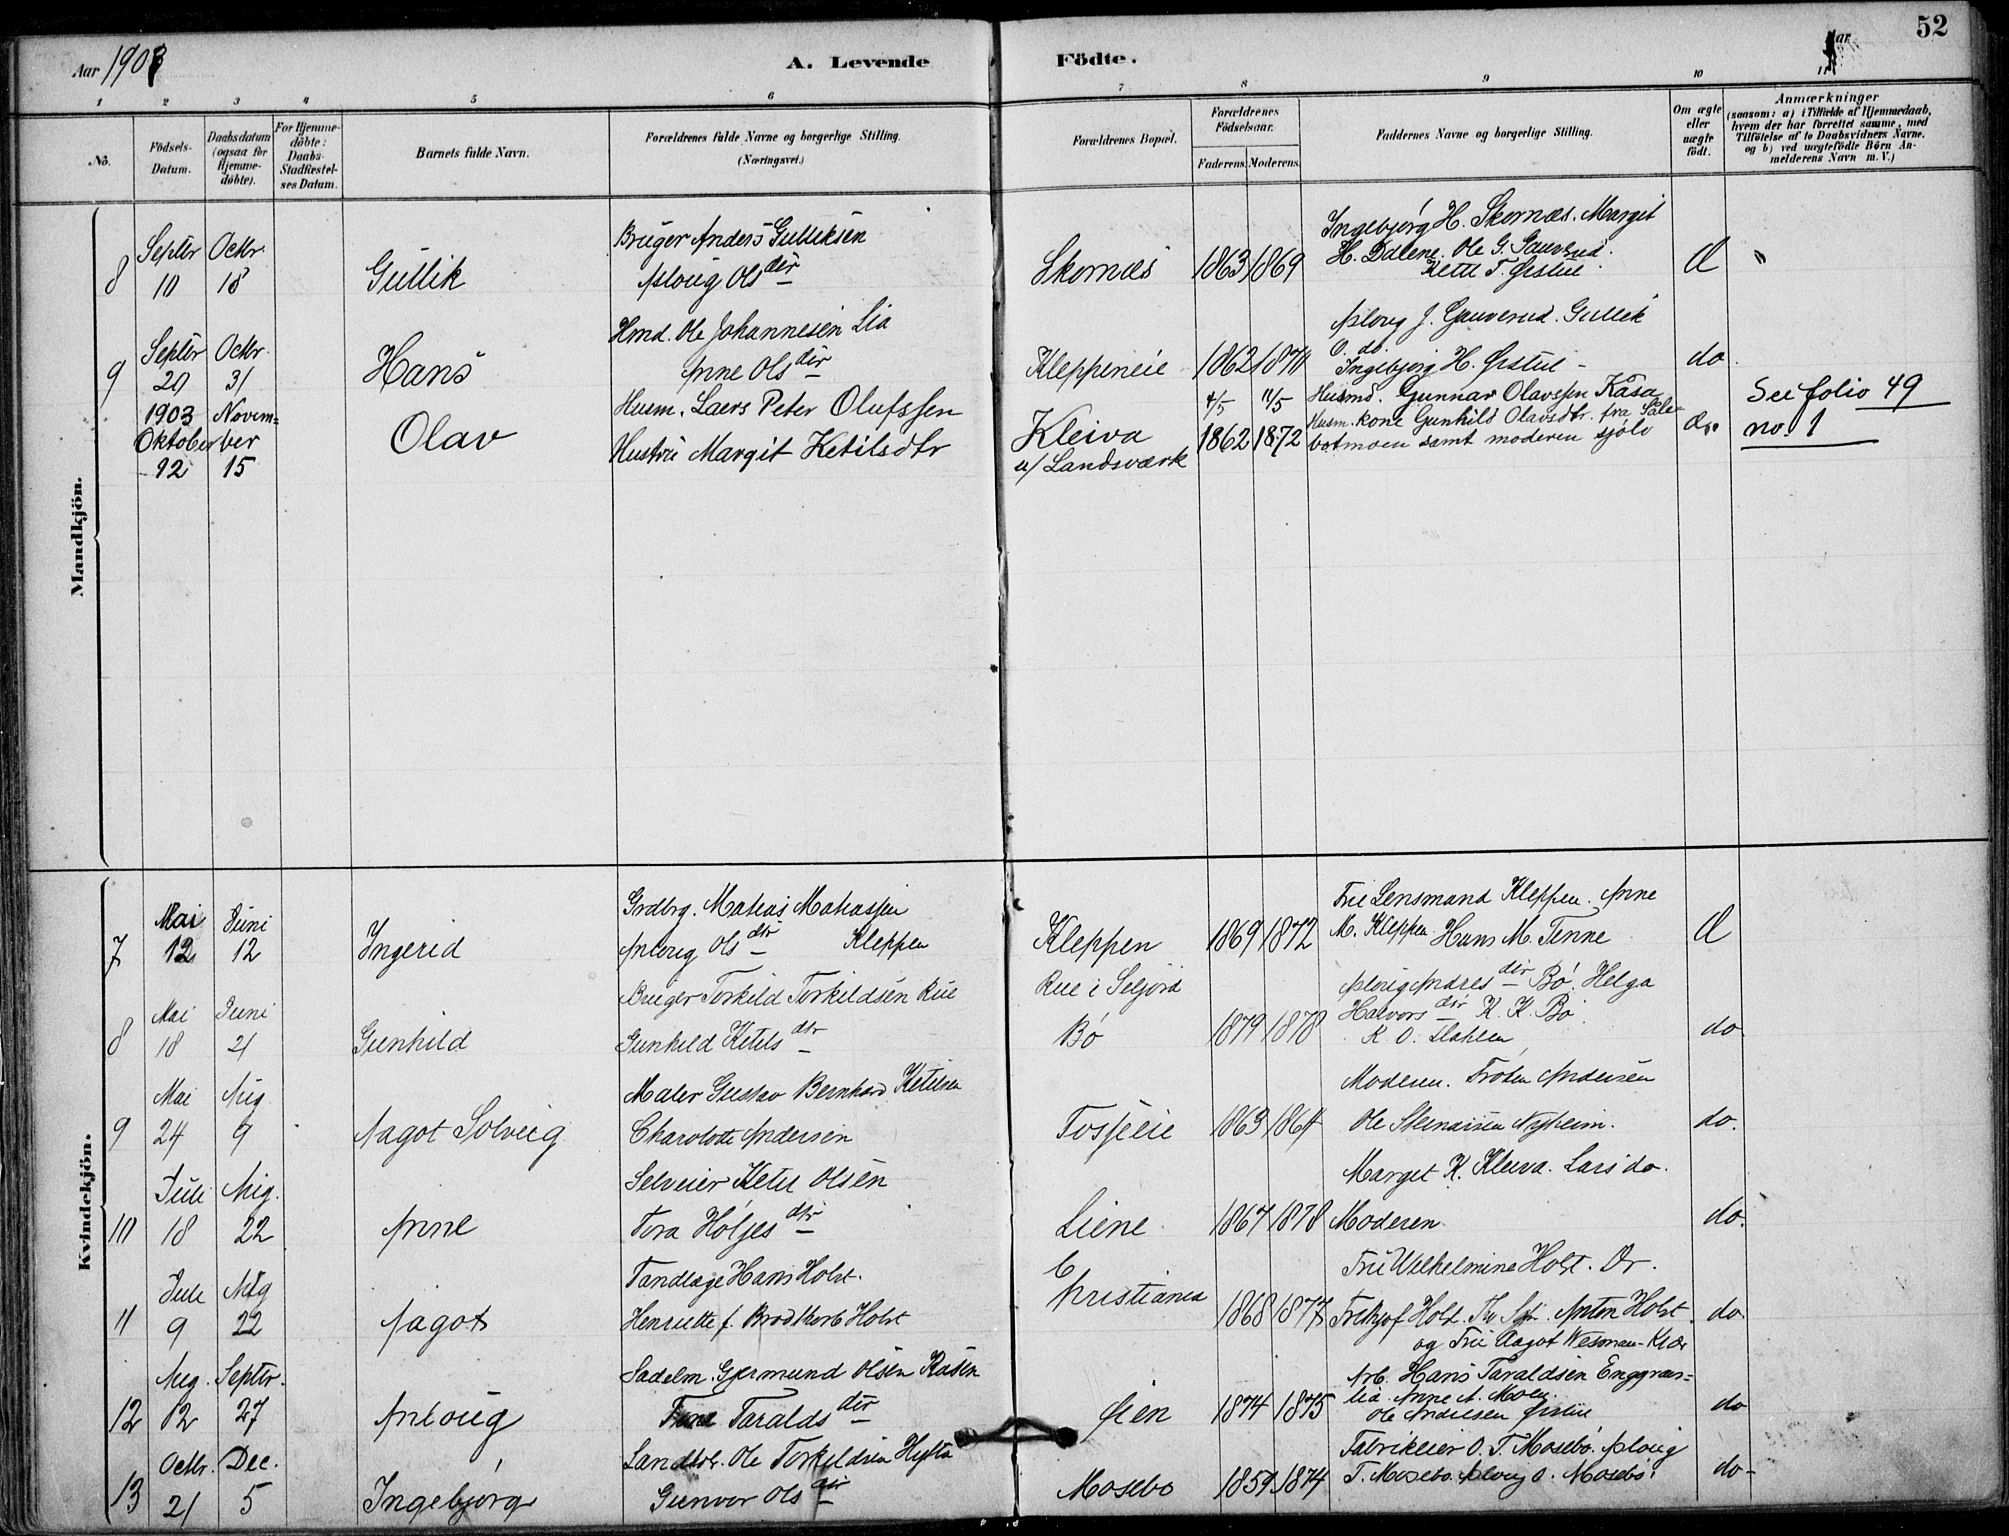 Aar 1903
A. Levende
Födte.
Aar
52
1 2 3 4 5 6 7 8 9 10 11
No.
Födsels-
Datum.
Daabsdatum
(ogsaa for
Hjemme-
döbte).
For Hjemme-
döbte:
Daabs-
Stadfæstel-
ses Datum.
Barnets fulde Navn.
Forældrenes fulde Navne og borgerlige Stilling.
(Næringsvei.)
Forældrenes Bopæl.
Forældrenes
Födselsaar.
Faderens. Moderens.
Faddernes Navne og borgerlige Stilling.
Om ægte
eller
uægte
födt.
Anmærkninger
(saasom: a) i Tilfælde af Hjemmedaab,
hvem der har forrettet samme, med
Tilföielse af to Daabsvidners Navne.
og b) ved uægtefödte Börn An-
melderens Navn m. V.)
Mandkjön.
8
Septbr 10
Octbr. 18
Gullik
Bruger Anders Gulliksen
Asloug Olsdtr
Skornæs
1863 1869
Ingebjørg H. Skornæs. Margit
H. Dalene. Ole G. Gauverud.
Ketil T. Ørstul.
Æ
9
Septbr 20
Octbr. 31
Hans
Hmd. Ole Johannesen Lia
Anne Olsdtr
Kleppeneie
1862 1870
Asloug J. Gauverud. Gullik
O. do.
Ingebjørg H. Ørstul -
do
1903
Oktober
12
Novem-
ber
15
Olav
Husm. Laers Peter Olufssen
Hustru Margit Ketilsdtr
Kleiva
u/ Landsværk
4/5 11/5
1862 1872
Husmd. Gunnar Olavssen Kåsa
Husm. kone Gunhild Olavsdtr. fra Sale-
botmoen samt moderen sjølv
do.
See folio 49
no. 1
Kvindekjön.
7
Mai 12
Juni 12
Ingerid
Grdbrg. Matias Matiassen
Anloug Olsdtr Kleppen
Kleppen
1869 1872
Frue Lensmand Kleppen. Anne
M. Kleppen Hans M. Tinne
Æ
8
Mai 18
Juni 21
Gunhild
Bruger Torkild Torkildsen Rue
Gunhild Ketilsdtr
Rue i Seljord
Bö
1879 1878
Asloug Andresdtr Bö. Helga
Halvorsdtr K. K. Bö.
K. O.
do
9
Mai 24
Aug. 9
Aagot Solveig
Maler Gustav Bernhard Ketilsen
Charolotte Andersen
Fosseeie
1863 1864
Moderen. Frøken Andersen
Ole Steinarsen Nyheim.
do.
10
Juli 18
Aug. 22
Anne
Selveier Ketil Olsen
Tora Høljesdtr
Liene
1867 1878
Margit K. Kleiva. Lars do.
Moderen
do.
11
Juli 9
Aug 22
Aagot
Tandlæge Hans Holst.
Henriette f. Brodtkorb Holst
Christiania
1868 1877
Frue Wilhelmine Holst. Dr.
Frithjof Holst. Anton Holst.
og Frue Aagot
do.
12
Aug. 12
Septbr. 27
Anloug
Sadelm. Gjermund Olsen Kåsen
Taraldsdtr
Øien
1874 1875
Arb. Hans Taraldsen Enggrav-
lia. Anne A. Moen.
Ole Andersen Ørstul
do
13
Octbr. 21
Dec. 5
Ingebjørg
Landhdl. Ole Torkildsen Hylta
Gunvor Olsdtr
Mosebø
1859 1874
Fabrikeier O. T. Mosebø. Aslaug
T. Mosebø. Aslaug O. Mosebø.
do-